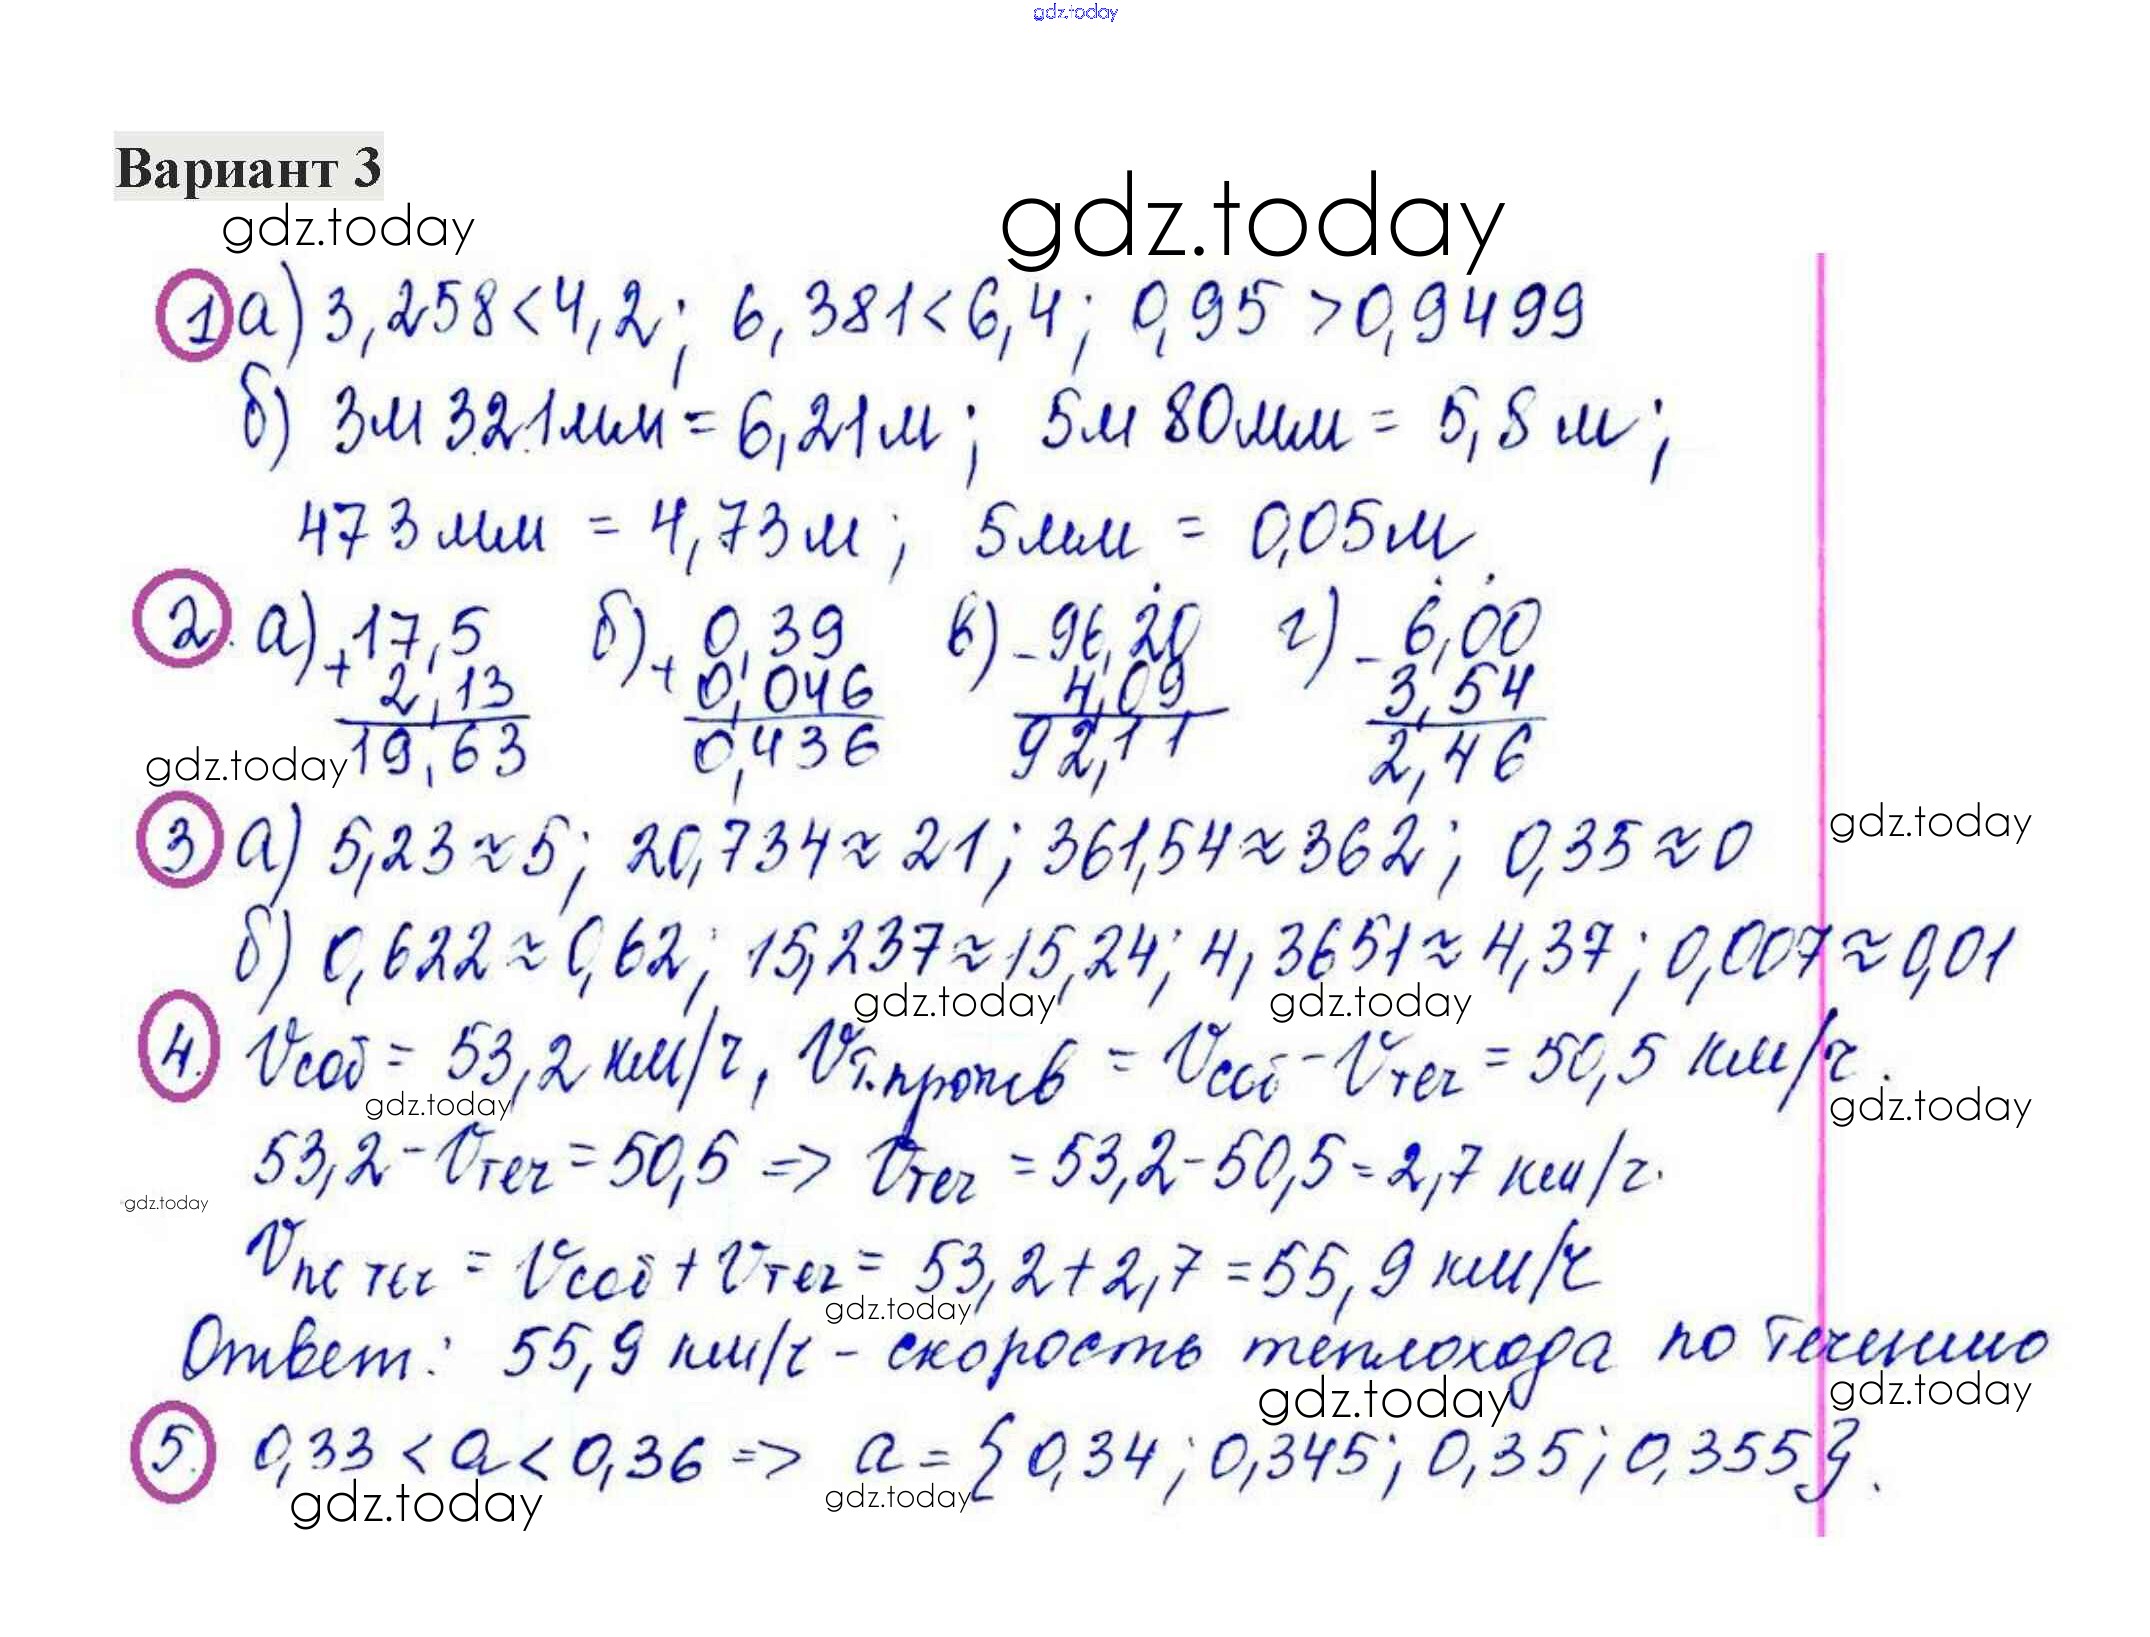 gdz.today
Вариант 3
gdz.today gdz.today
1 а) 3,258 < 4,2; 6,381 < 6,4; 0,95 > 0,9499
б) 3м 321мм = 6,21м; 5м 80мм = 5,8 м;
473 мм = 4,73м; 5мм = 0,05м.
2. а) + 17,5 б) + 0,39 в) - 96,20 г) - 6,00
2,13 0,046 4,09 3,54
19,63 0,436 92,11 2,46
gdz.today
3 а) 5,23 ≈ 5; 20,734 ≈ 21; 361,54 ≈ 362; 0,35 ≈ 0
gdz.today
б) 0,622 ≈ 0,62; 15,237 ≈ 15,24; 4,3651 ≈ 4,37; 0,007 ≈ 0,01
gdz.today gdz.today
4. Vсоб = 53,2 км/ч, Vт.против = Vсоб - Vтеч = 50,5 км/ч.
gdz.today gdz.today
53,2 - Vтеч = 50,5 => Vтеч = 53,2 - 50,5 = 2,7 км/ч.
gdz.today
Vпо теч = Vсоб + Vтеч = 53,2 + 2,7 = 55,9 км/ч
gdz.today
Ответ: 55,9 км/ч - скорость теплохода по течению
gdz.today gdz.today
5. 0,33 < a < 0,36 => a = {0,34; 0,345; 0,35; 0,355}.
gdz.today gdz.today